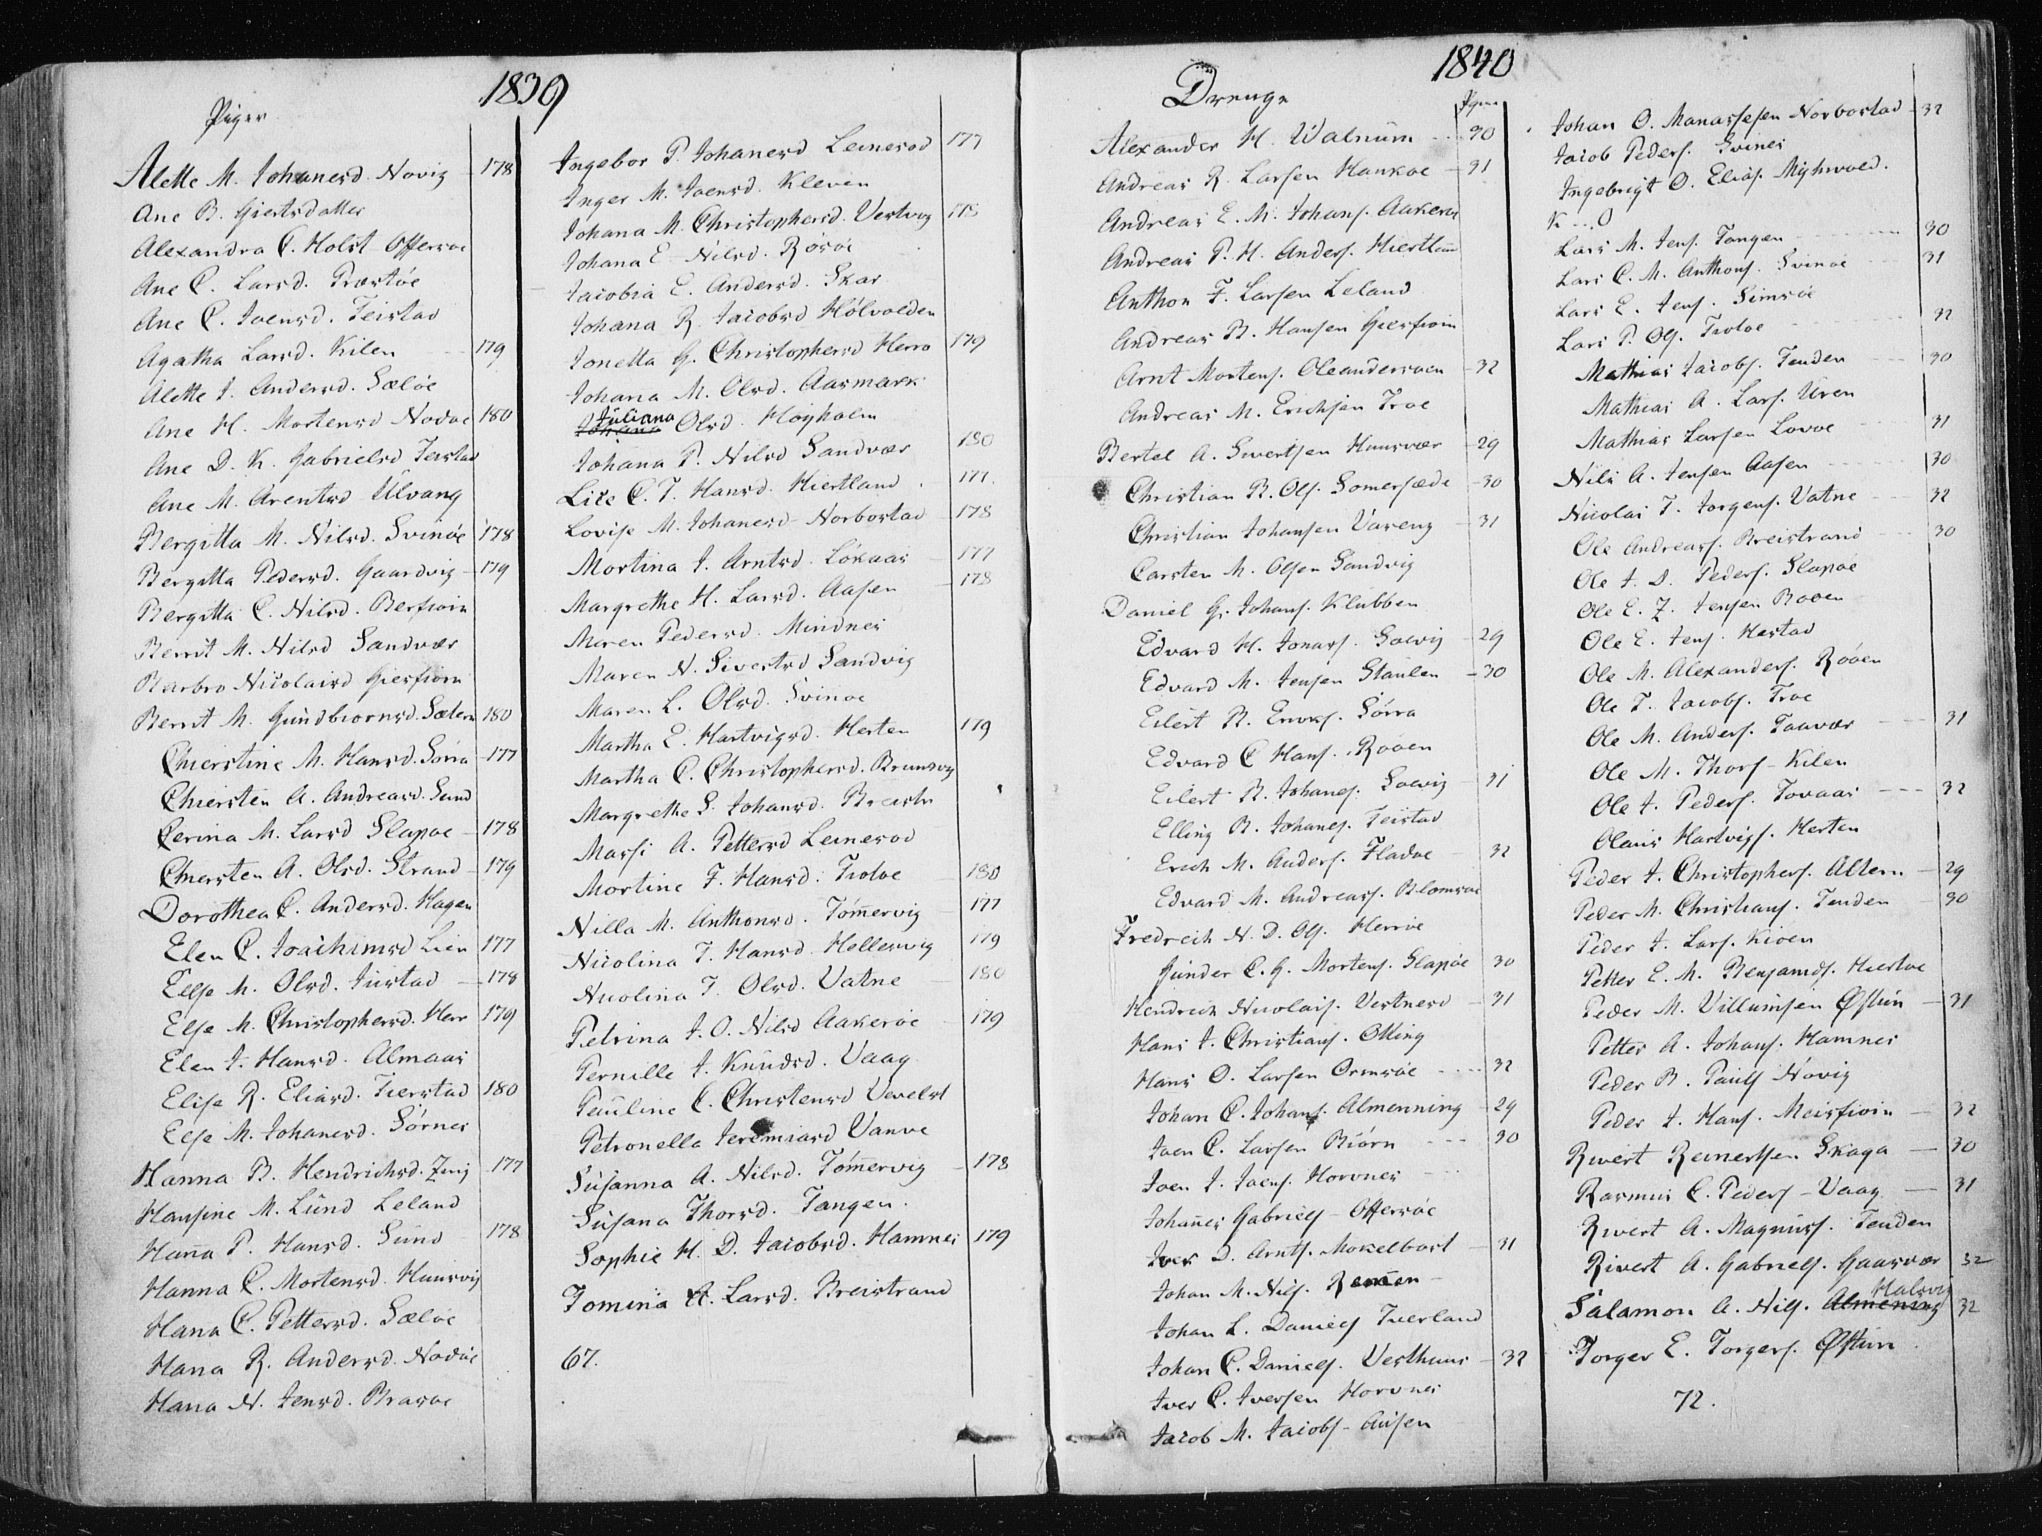 1839
Piger
Alette M. Johanesd. Novig 178
Ane B. Giertsdatter
Alexandra C. Holst Offersøe
Ane C. Larsd. Præstöe
Ane C. Joensd. Teistad
Agatha Larsd. Kilen 179
Alette J. Andersd. Sæløe
Ane H. Mortensd Nodøe 180
Ane D. K. Gabrielsd Teistad
Ane M. Arentsd Ulvang
Bergitta M. Nilsd. Svinöe 178
Bergitta Pedersd. Gaardvig 179
Bergitta C. Nilsd.
Berrit M. Nilsd Sandvær
Barbro Nicolaisd Giesfiorn
Berrit M. Gundbiornsd. Sætern 180
Chierstine M. Hansd. Sörra 177
Chiersten A. Andreasd. Sund
Cerina M. Larsd Slapøe 178
Chiersten A. Olsd. Strand 179
Dorothea C. Andersd. Hagen
Elen C. Joachimsd Lien 177
Else M. Olsd. Justad 178
Else M. Christophersd. Herr 179
Elen J. Hansd. Almaas
Elise R. Eliasd. Tierstad 180
Else M. Johanesd. Sörnes
Hanna B. Hendrichsd. 177
Hansine M. Lund Leland
Hana P. Hansd. Sund 178
Hanna C. Mortensd. Hunsvig
Hana C. Pettersd. Sæløe
Hana R. Andersd. Nodöe
Hana N. Jensd. Brasøe
Ingebor P. Johanesd Leinesod 177
Inger M. Joensd. Kleven
Johana M. Christophersd. Vestvog 178
Johana E. Nilsd. Rösöe
Jacobia E. Andersd. Skar
Johana R. Jacobsd Hölvolden
Jonetta G. Christophersd Herrø 179
Johana M. Olsd. Aasmark
Juliana Olsd. Høyholm
Johana P. Nilsd Sandvær 180
Lise C. J. Hansd. Hiertland 177
Lovise M. Johanesd Norbostad 178
Mortina J. Arntsd. Lökaas 177
Margrethe H. Larsd. Aasen 178
Maren Pedersd. Mindnes
Maren N. Sivertsd Sandvig
Maren L. Olsd. Svinøe
Martha E. Hartvigsd. Herten 179
Martha C. Christophersd. Brunsvig
Margrethe S. Johansd.
Massi A. Pettersd Leinesod
Mortine F. Hansd. Troløe 180
Nilla M. Anthonsd. Tömervig 177
Nicolina J. Hansd. Hellesvig 179
Nicolina J. Olsd. Vatne 180
Petrina J. O. Nilsd Aakeröe 179
Pernille J. Knudsd. Vaag
Pauline C. Christensd Vevelst
Petronella Jeremiasd Vanve
Susanna A. Nilsd. Tömervig 178
Susana Thorsd. Tangen.
Sophie H. D. Jacobsd. Hamnes 179
Tomina A. Larsd. Breistrand
67.
1840
Drenge Pgna
Alexander H. Walnum 30
Andreas R. Larsen Haukøe 31
Andreas E. M. Johans. Aakerøe
Andreas P. H. Anders. Hiertland
Anthon F. Larsen Leland
Andreas B. Hansen Giesfiorn
Arnt Mortens. Oleandersøen 32
Andreas M. Erichsen Troe
Bertel A. Sivertsen Hunsvær 29
Christian R. Ols. Somersæde 30
Christian Johansen Vareng 31
Carsten M. Olsen Sandvig
Daniel G. Johans. Klubben
Edvard H. Jonass. Solvig 29
Edvard M. Jensen Staulen 30
Eilert R. Enoks. Sörra
Edvard C Hans. Röøen
Eilert R. Johanes. Solvig 31
Elling B. Johanes. Teistad
Erich M. Anders. Fladøe 32
Edvard M. Andreass. Blomsøe
Fredrich N. D. Ols. Herröe
Günder C. G. Mortens. Slapöe 30
Hendrich Nicolais. Vestnesd 31
Hans J. Christians. Olling
Hans O. Larsen Ormsöe 32
Johan C. Johans. Almenning 29
Joen C. Larsen Biörn 30
Joen J. Joens. Horvnes
Johanes Gabriels. Offersöe
Iver D. Arnts. Mokelbost 31
Johan M. Nils. Remen
Johan L. Daniels Tverland
Johan C. Daniels. Vesthuus 32
Iver C. Iversen Horvnes
Jacob M. Jacobs. Ausen
Johan O. Manassesen Norbostad 32
Jacob Peders. Svines
Ingebrigt O. Elias. Myhrvold.
K...O
Lars M. Jens. Tangen 30
Lars C. M. Anthons. Svinøe 31
Lars E. Jens. Simsöe
Lars P. Ols. Troløe 32
Mathias Jacobs. Tenden 30
Mathias A. Lars. Uren
Mathias Larsen Lovøe 31
Nils A. Jensen Aasen 30
Nicolai J. Jorgens. Vatne 32
Ole Andreass. Breistrand 30
Ole J. D. Peders. Slapöe
Ole E. Z. Jensen Rooen
Ole E. Jens. Hestad
Ole M. Alexanders. Röøen
Ole T. Jacobs. Troe
Ole M. Anders. Taavær 31
Ole M. Thors. Kilen
Ole J. Peders. Tovaas 32
Olaus Hartvigs. Herten
Peder J. Christophers. Altern 29
Peder M. Christians. Tenden 30
Peder J. Lars. Kioen
Petter E. M. Benjamds. Hiertøe
Peder M. Villumsen Østun 31
Petter A. Johans. Hamnes
Peder B. Pauls Növig
Peder J. Hans. Meisfiorn 32
Rivert Reinertsen Skaga 30
Rasmus C. Peders. Vaag 31
Rivert A. Magnuss. Tenden
Rivert A. Gabriels. Gaasvær 32
Halsvig
Salamon A. Nils. Almening 32
Torger E. Torgers. Østun
72.